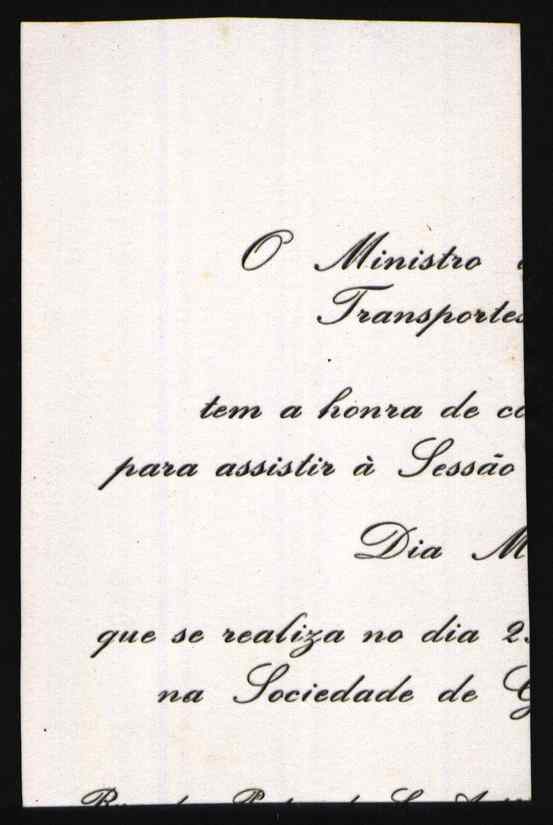 O Ministro
Transportes
tem a honra de
para assistir à Sessão
Dia M
que se realiza no dia 2
na Sociedade de G